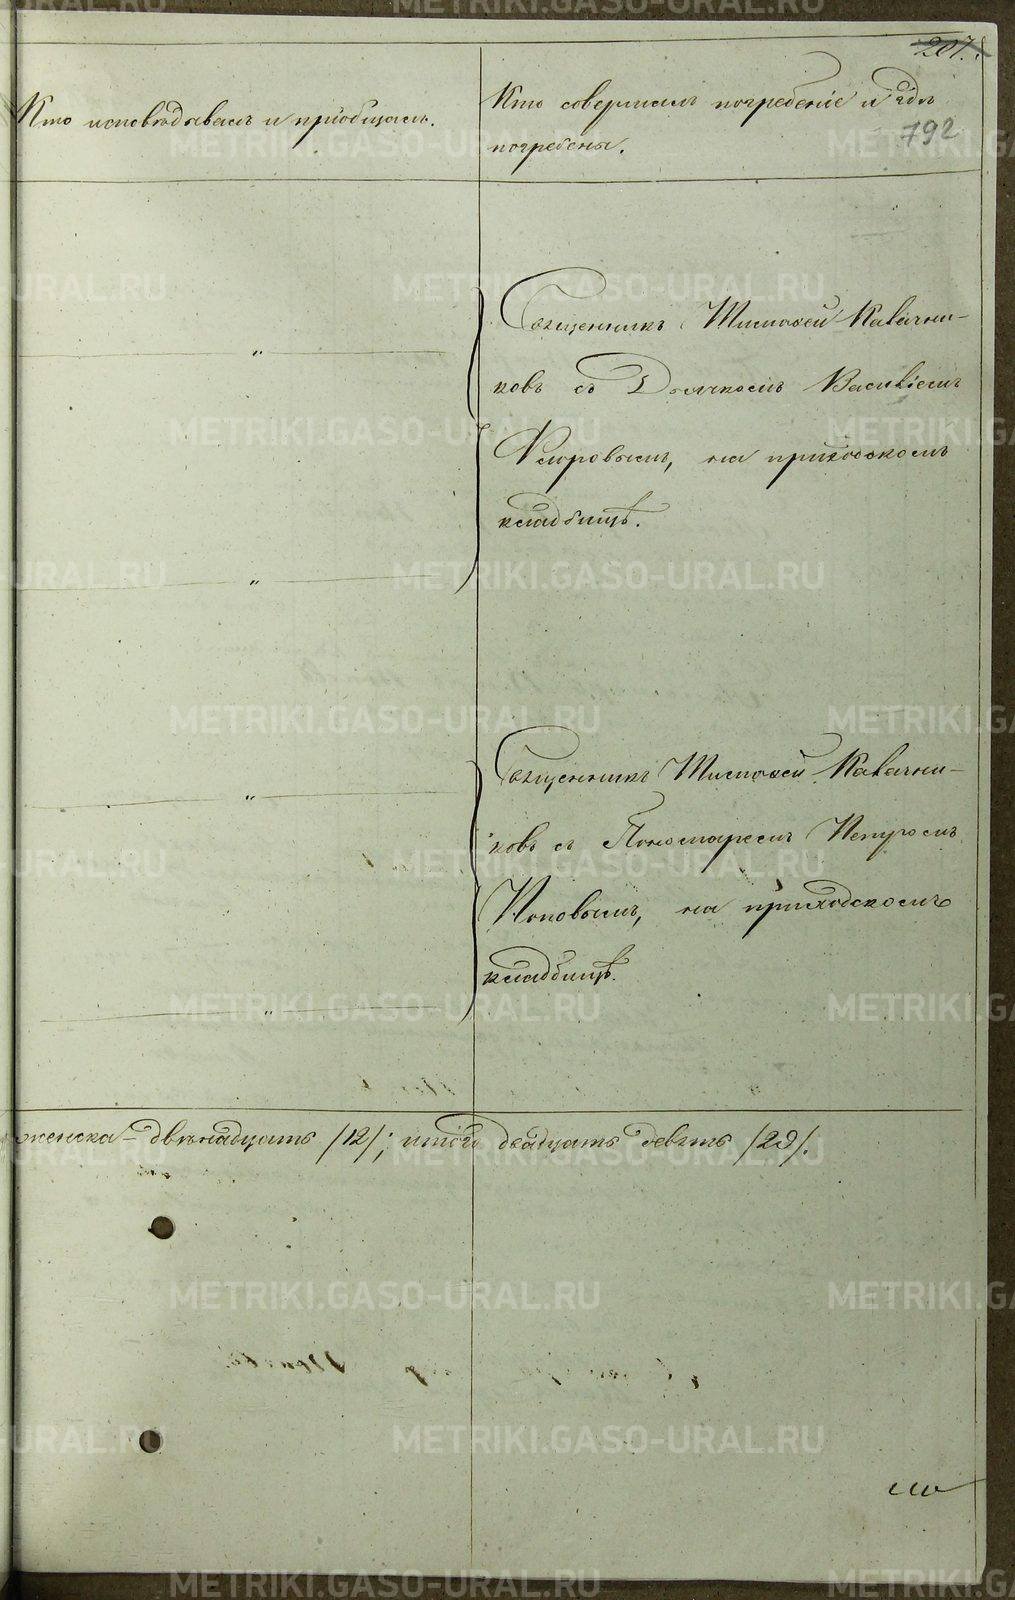 207.
792
Кто исповѣдывалъ и пріобщалъ.
Кто совершалъ погребеніе и гдѣ
погребены.
Священникъ Тимоѳей Кавачни-
ковъ съ Дьячкомъ Василіемъ
"
Флоровымъ, на приходскомъ
кладбищѣ.
"
Священникъ Тимоѳей Кавачни-
"
ковъ съ Пономаремъ Петромъ
Поповымъ, на приходскомъ
кладбищѣ.
"
женска – двѣнадцать /12/; итого двадцать девять /29/.
METRIKI.GASO-URAL.RU